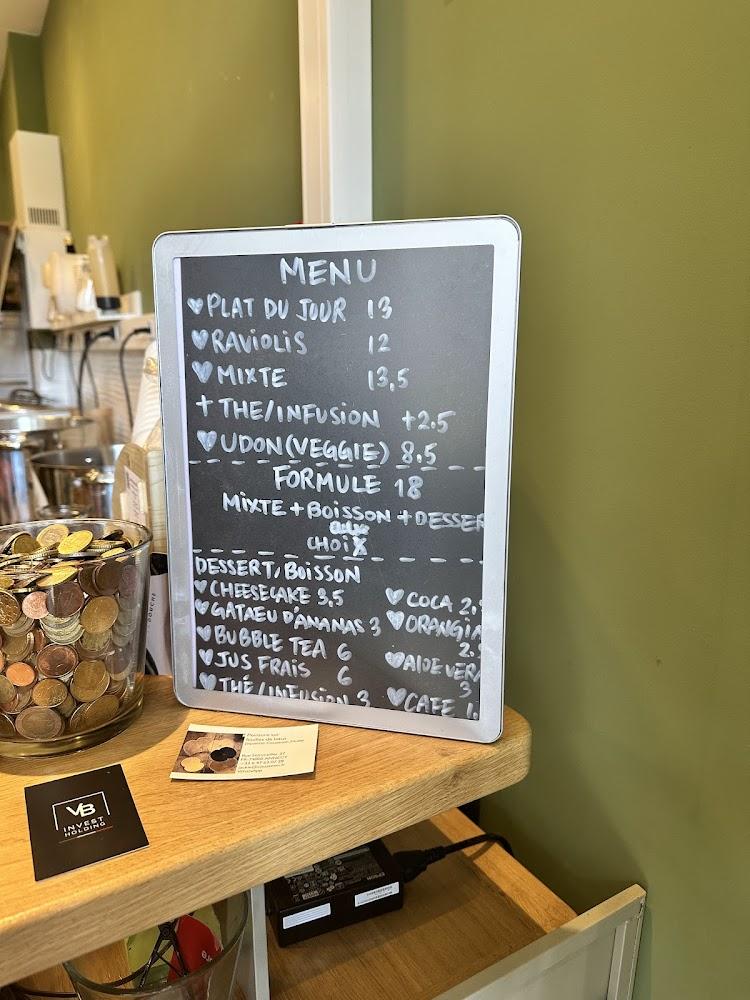 MENU
PLAT DU JOUR 13
RAVIOLIS 12
MIXTE 13,5
+ THE/INFUSION +2.5
UDON (VEGGIE) 8.5
FORMULE 18
MIXTE + BOISSON + DESSER
au
CHOIX
DESSERT/BOISSON
CHEESECAKE 3,5
GATAEU D'ANANAS 3
BUBBLE TEA 6
JUS FRAIS 6
THÉ/INFUSION 3
COCA 2,
ORANGINA
2.
ALOE VERA
3
CAFE 1,
VB
INVEST
HOLDING